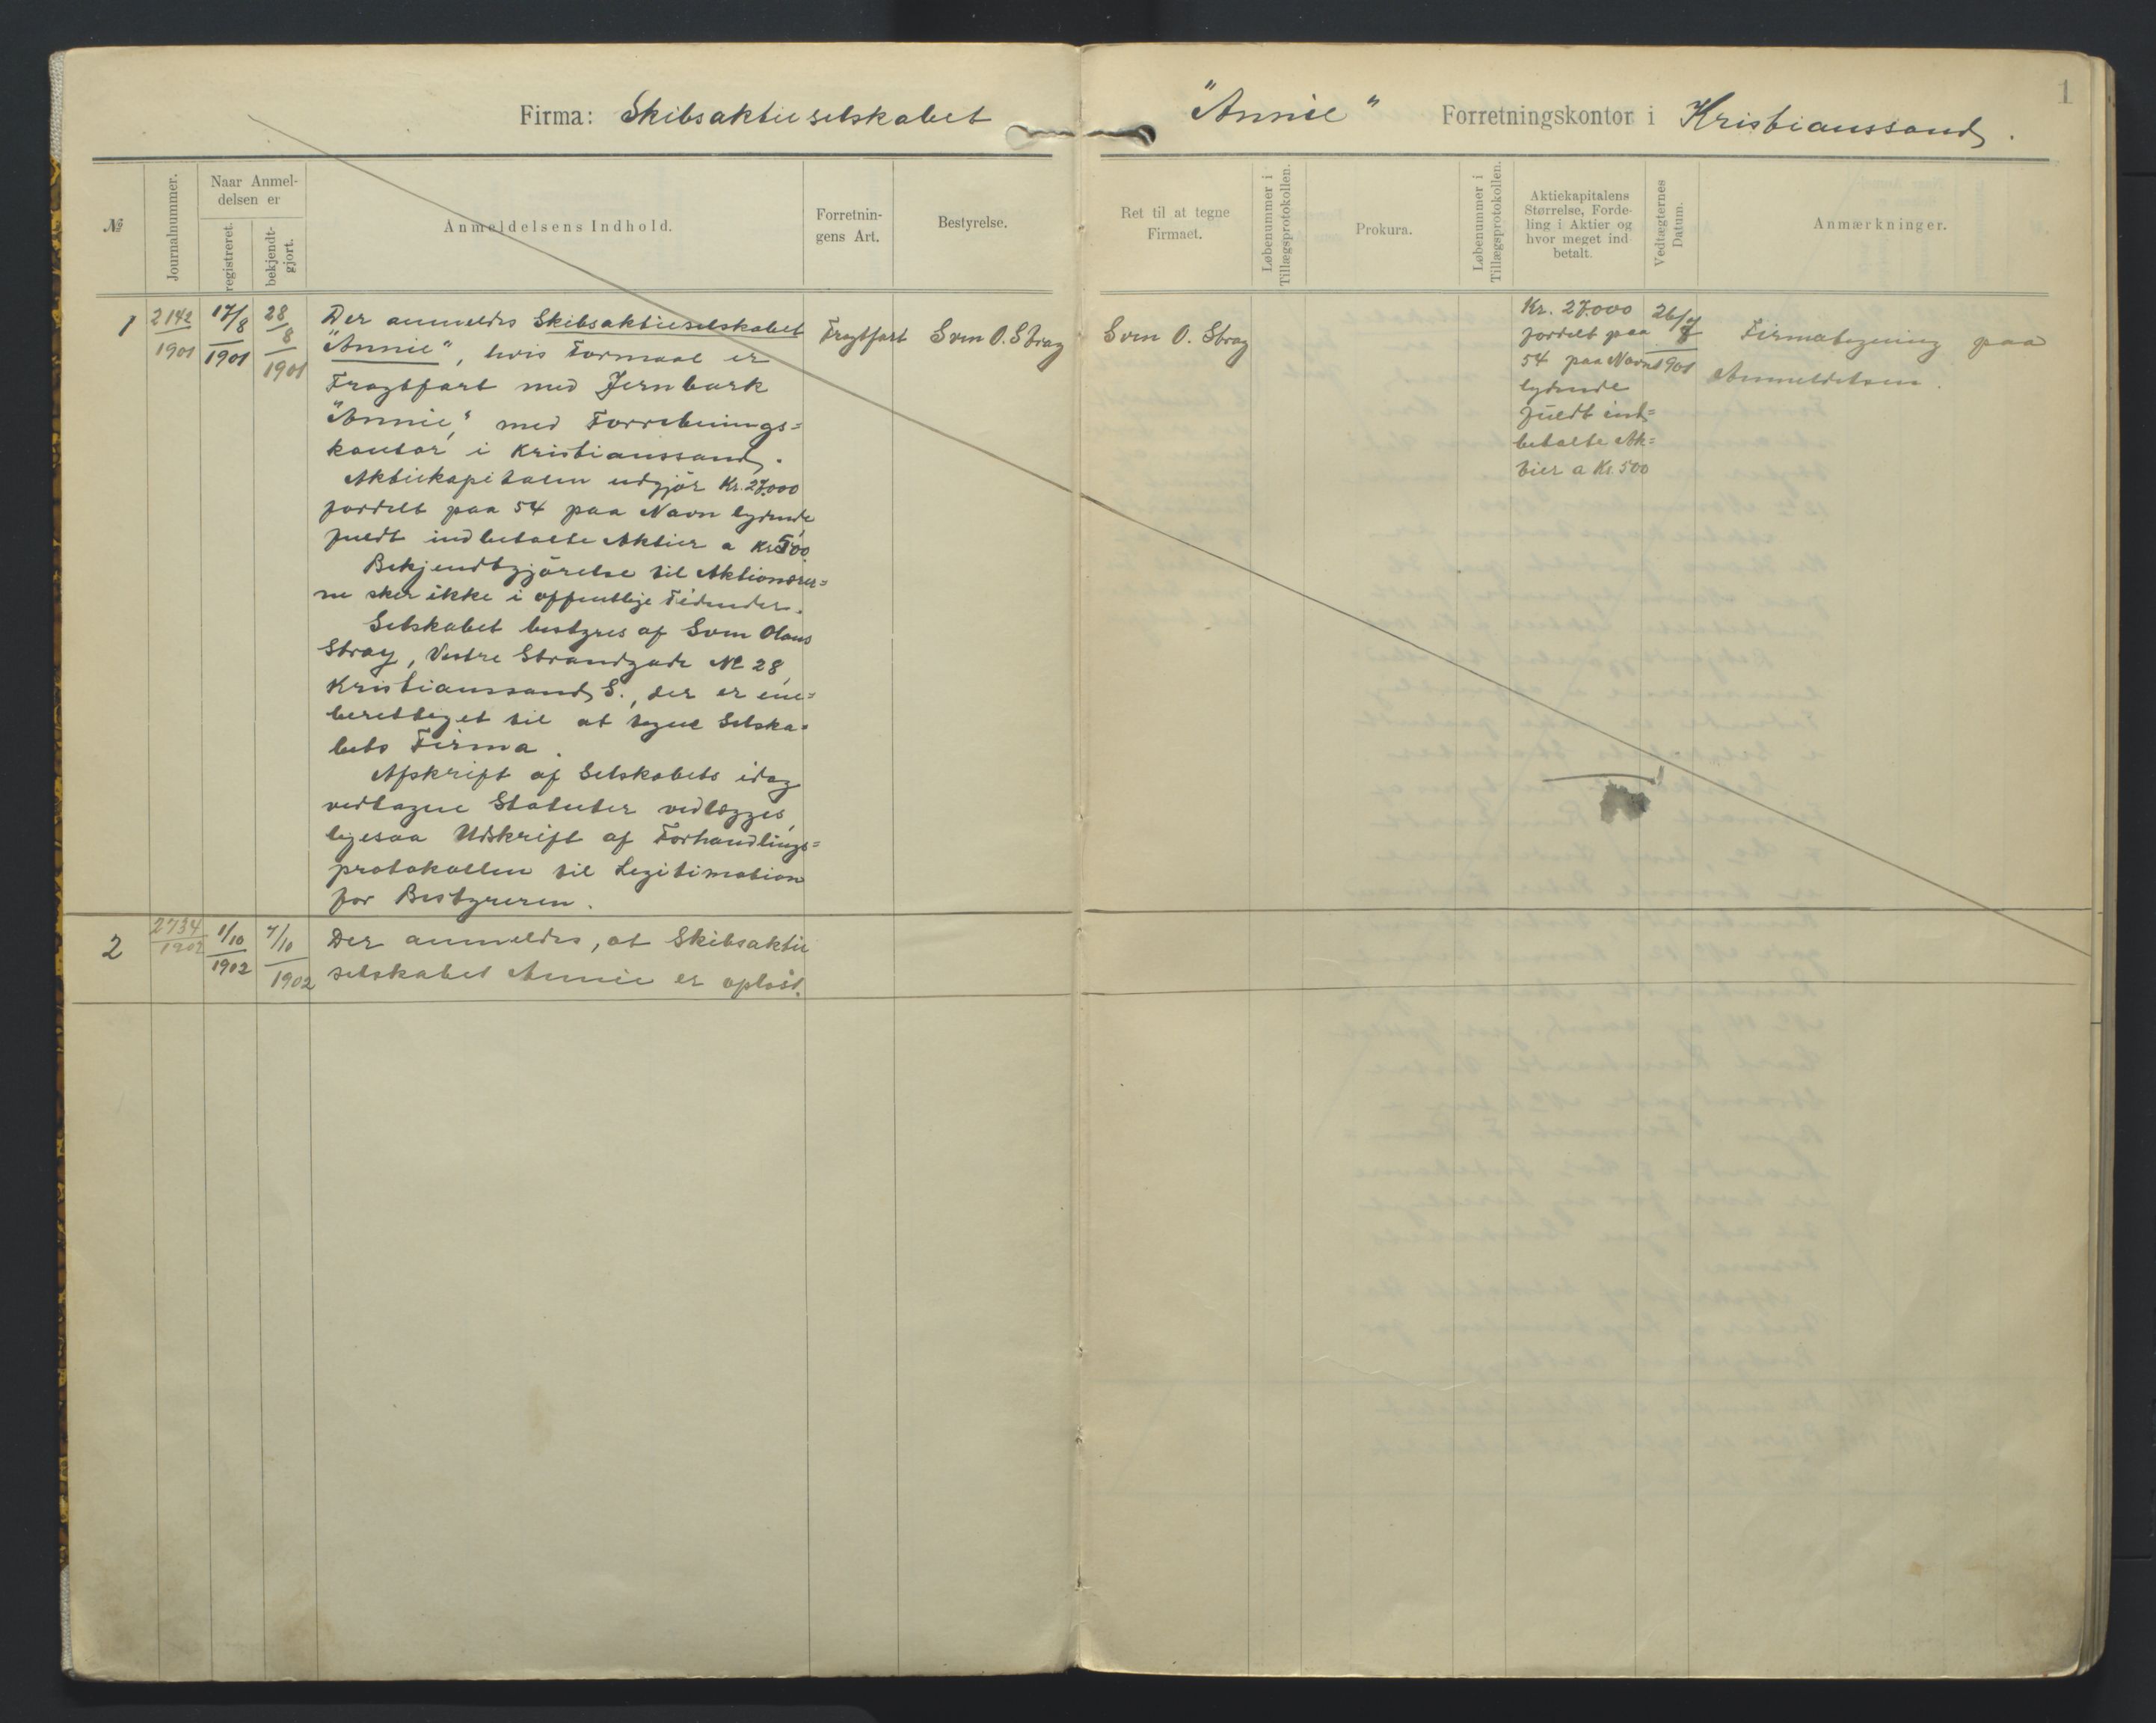 1
Firma: Skibsaktieselskabet "Annie" Forretningskontor i Kristianssand.
№
Journalnummer.
Naar Anmel-
delsen er
registreret.
bekjendt-
gjort.
Anmeldelsens Indhold.
Forretnin-
gens Art.
Bestyrelse.
Ret til at tegne
Firmaet.
Løbenummer i
Tillægsprotokollen.
Prokura.
Løbenummer i
Tillægsprotokollen.
Aktiekapitalens
Størrelse, Forde-
ling i Aktier og
hvor meget ind
betalt.
Vedtægternes
Datum.
Anmærkninger.
1
2142
1901
17/8
1901
28/8
1901
Der anmeldes Skibsaktieselskabet
"Annie", hvis Formaal er
Fragtfart med Jernbark
"Annie," med Forretnings=
kontor i Kristianssand.
Aktiekapitalen udgjör Kr. 27,000
fordelt paa 54 paa Navn lydende
fuldt indbetalte Aktier a Kr 500
Bekjendtgjörelse til Aktionærer=
ne sker ikke i offentlige Tidender.
Selskabet bestyres af Sven Olaus
Stray, Vestre Strandgade № 28,
Kristianssand S., der er ene=
berettiget til at tegne Selska=
bets Firma.
Afskrift af Selskabets idag
vedtagne Statuter vedlægges,
ligesaa Udskrift af Forhandlings=
protokollen til Legitimation
for Bestyreren.
Fragtfart
Sven O. Stray
Sven O. Stray
Kr. 27.000
fordelt paa
54 paa Navn
lydende
fuldt ind=
betalte Ak=
tier a Kr. 500
26/7
1901
Firmategning paa
Anmeldelsen.
2
2734
1902
1/10
1902
7/10
1902
Der anmeldes, at Skibsaktie
selskabet Annie er oplöst.